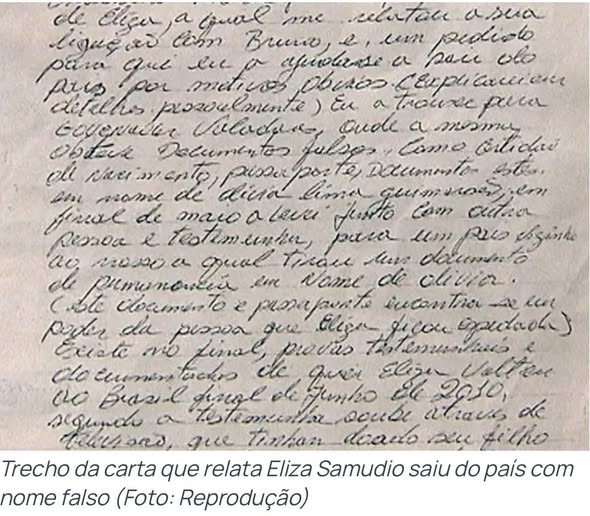 de Eliza, a qual me relatou a sua
ligação com Bruno, e, um pedido
para que eu a ajudasse a sair do
país por motivos obvios. (Explicarei em
detelhes pessoalmente) Eu a trouxe para
Governador Valadares, onde a mesma
obteve Documentos falsos, como certidão
de Nascimento, passaporte, Documentos estes.
em nome de olivia lima guimarães, em
final de maio a levei junto com outra
pessoa e testemunha, para um país vizinho
ao nosso a qual tirou um documento
de permanencia em nome de olivia.
(este documento e passaporte encontra-se em
poder da pessoa que Eliza ficou hospedada)
Existe no final, provas testemunhais e
documentadas de que Eliza Voltou
ao Brasil final de Junho de 2010,
segundo a testemunha soube através de
televisão, que tinham doado seu filho
Trecho da carta que relata Eliza Samudio saiu do país com
nome falso (Foto: Reprodução)